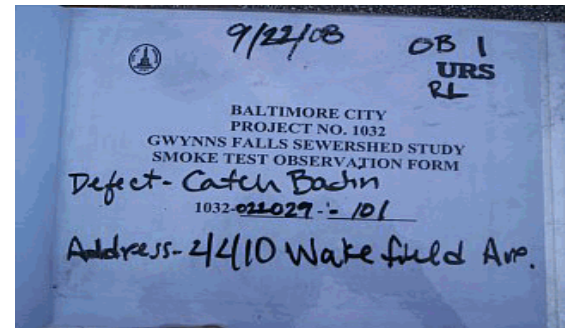 9/22/08
OB 1
URS
RL
BALTIMORE CITY
PROJECT NO. 1032
GWYNNS FALLS SEWERSHED STUDY
SMOKE TEST OBSERVATION FORM
Defect- Catch Basin
1032-021029-- 101
Address- 4410 Wakefield Ave.